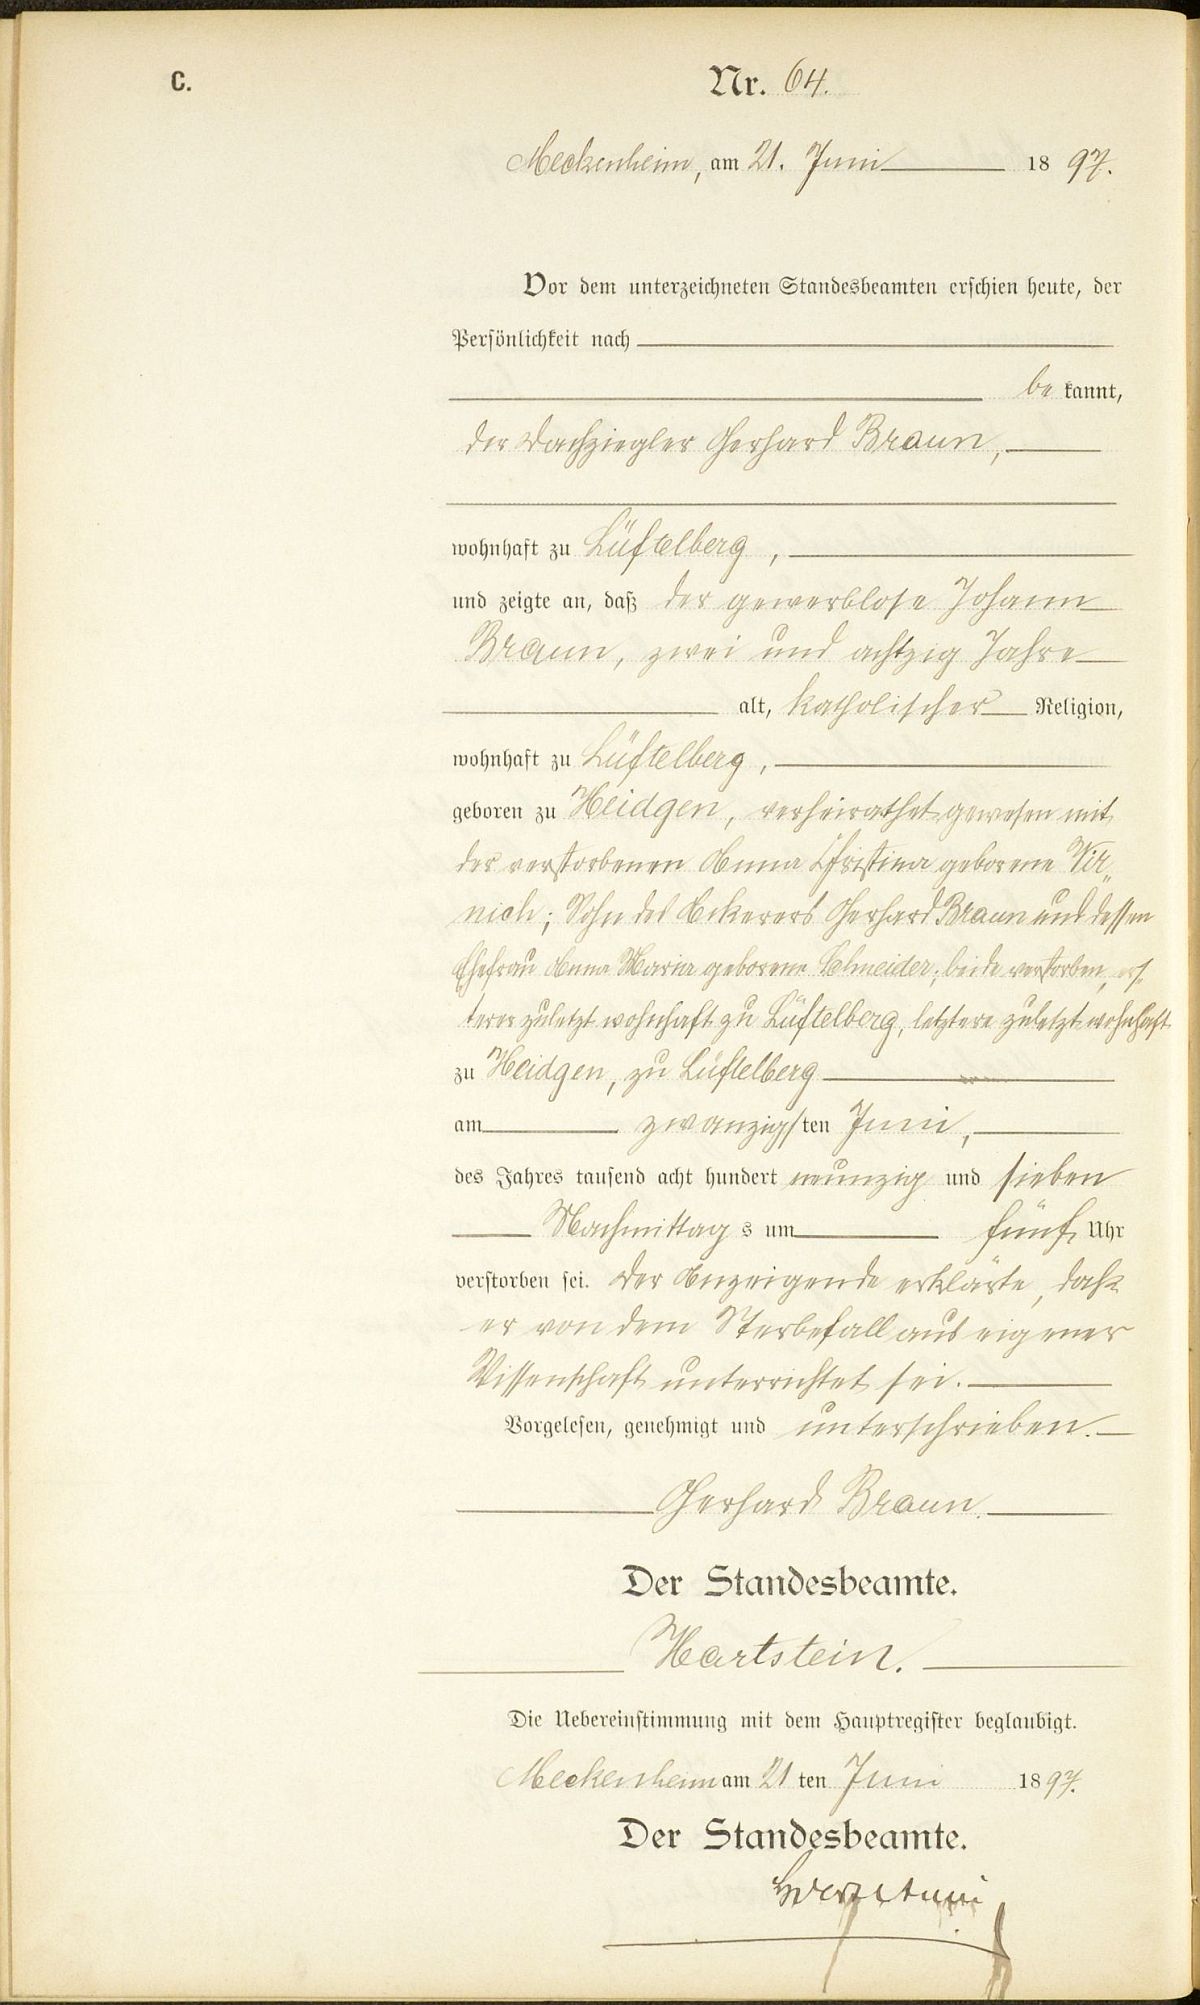 C.
Nr. 64.
Meckenheim, am 21. Juni 1897.
Vor dem unterzeichneten Standesbeamten erschien heute, der
Persönlichkeit nach
bekannt,
der Dachziegler Gerhard Braun,
wohnhaft zu Lüftelberg,
und zeigte an, daß der gewerblose Johann
Braun, zwei und achtzig Jahre
alt, katholischer Religion,
wohnhaft zu Lüftelberg,
geboren zu Heidgen, verheirathet gewesen mit
der verstorbenen Anna Christina geborene Vir„
nich; Sohn des Ackerers Gerhard Braun und dessen
Ehefrau Anna Maria geborene Schneider, beide verstorben, ers„
terer zuletzt wohnhaft zu Lüftelberg, letztere zuletzt wohnhaft
zu Heidgen, zu Lüftelberg
am zwanzigsten Juni,
des Jahres tausend acht hundert neunzig und sieben
Nachmittags um fünf Uhr
verstorben sei. Der Anzeigende erklärte, daß
er von dem Sterbefall aus eigener
Wissenschaft unterrichtet sei.
Vorgelesen, genehmigt und unterschrieben.
Gerhard Braun.
Der Standesbeamte.
Hartstein.
Die Uebereinstimmung mit dem Hauptregister beglaubigt.
Meckenheim am 21ten Juni 1897.
Der Standesbeamte.
Hartstein